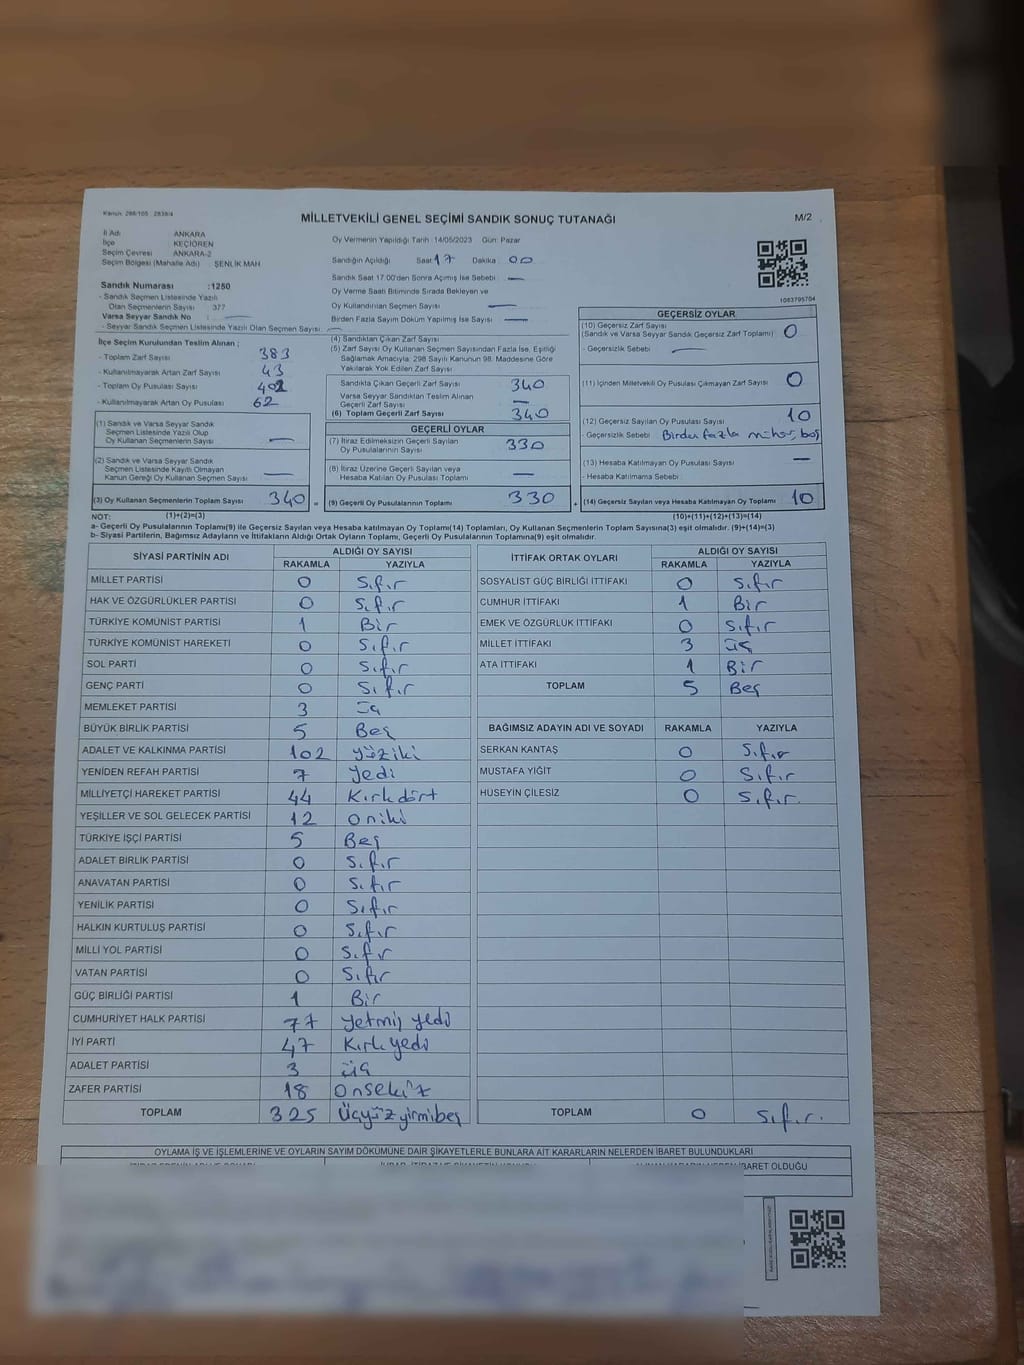 Kanun: 298/105 : 2839/4
MİLLETVEKİLİ GENEL SEÇİMİ SANDIK SONUÇ TUTANAĞI
M/2
İl Adı : ANKARA
İlçe : KEÇİÖREN
Seçim Çevresi : ANKARA-2
Seçim Bölgesi (Mahalle Adı) : ŞENLİK MAH
Oy Vermenin Yapıldığı Tarih :14/05/2023 Gün: Pazar
Sandığın Açıldığı Saat 17 Dakika : 00
Sandık Saat 17:00'den Sonra Açılmış İse Sebebi : —
Oy Verme Saati Bitiminde Sırada Bekleyen ve
Oy Kullandırılan Seçmen Sayısı : —
Birden Fazla Sayım Döküm Yapılmış İse Sayısı : —
1083795704
Sandık Numarası :1250
- Sandık Seçmen Listesinde Yazılı
Olan Seçmenlerin Sayısı : 377
Varsa Seyyar Sandık No : —
- Seyyar Sandık Seçmen Listesinde Yazılı Olan Seçmen Sayısı: —
İlçe Seçim Kurulundan Teslim Alınan ;
- Toplam Zarf Sayısı 383
- Kullanılmayarak Artan Zarf Sayısı : 43
- Toplam Oy Pusulası Sayısı 402
- Kullanılmayarak Artan Oy Pusulası 62
(4) Sandıktan Çıkan Zarf Sayısı
(5) Zarf Sayısı Oy Kullanan Seçmen Sayısından Fazla İse, Eşitliği
Sağlamak Amacıyla; 298 Sayılı Kanunun 98. Maddesine Göre
Yakılarak Yok Edilen Zarf Sayısı
Sandıkta Çıkan Geçerli Zarf Sayısı 340
Varsa Seyyar Sandıktan Teslim Alınan
Geçerli Zarf Sayısı —
(6) Toplam Geçerli Zarf Sayısı 340
GEÇERLİ OYLAR
(7) İtiraz Edilmeksizin Geçerli Sayılan
Oy Pusulalarının Sayısı 330
(8) İtiraz Üzerine Geçerli Sayılan veya
Hesaba Katılan Oy Pusulası Toplamı —
(9) Geçerli Oy Pusulalarının Toplamı 330
GEÇERSİZ OYLAR
(10) Geçersiz Zarf Sayısı
(Sandık ve Varsa Seyyar Sandık Geçersiz Zarf Toplamı) 0
- Geçersizlik Sebebi : —
(11) İçinden Milletvekili Oy Pusulası Çıkmayan Zarf Sayısı 0
(12) Geçersiz Sayılan Oy Pusulası Sayısı 10
- Geçersizlik Sebebi : Birden fazla mühür, boş
(13) Hesaba Katılmayan Oy Pusulası Sayısı —
- Hesaba Katılmama Sebebi :
(14) Geçersiz Sayılan veya Hesaba Katılmayan Oy Toplamı 10
(1) Sandık ve Varsa Seyyar Sandık
Seçmen Listesinde Yazılı Olup
Oy Kullanan Seçmenlerin Sayısı —
(2) Sandık ve Varsa Seyyar Sandık
Seçmen Listesinde Kayıtlı Olmayan
Kanun Gereği Oy Kullanan Seçmen Sayısı —
(3) Oy Kullanan Seçmenlerin Toplam Sayısı 340 =
+
NOT: (1)+(2)=(3)
(10)+(11)+(12)+(13)=(14)
a- Geçerli Oy Pusulalarının Toplamı(9) ile Geçersiz Sayılan veya Hesaba katılmayan Oy Toplamı(14) Toplamları, Oy Kullanan Seçmenlerin Toplam Sayısına(3) eşit olmalıdır. (9)+(14)=(3)
b- Siyasi Partilerin, Bağımsız Adayların ve İttifakların Aldığı Ortak Oyların Toplamı, Geçerli Oy Pusulalarının Toplamına(9) eşit olmalıdır.
SİYASİ PARTİNİN ADI ALDIĞI OY SAYISI
RAKAMLA YAZIYLA
MİLLET PARTİSİ 0 Sıfır
HAK VE ÖZGÜRLÜKLER PARTİSİ 0 Sıfır
TÜRKİYE KOMÜNİST PARTİSİ 1 Bir
TÜRKİYE KOMÜNİST HAREKETİ 0 Sıfır
SOL PARTİ 0 Sıfır
GENÇ PARTİ 0 Sıfır
MEMLEKET PARTİSİ 3 üç
BÜYÜK BİRLİK PARTİSİ 5 Beş
ADALET VE KALKINMA PARTİSİ 102 yüziki
YENİDEN REFAH PARTİSİ 7 yedi
MİLLİYETÇİ HAREKET PARTİSİ 44 Kırkdört
YEŞİLLER VE SOL GELECEK PARTİSİ 12 oniki
TÜRKİYE İŞÇİ PARTİSİ 5 Beş
ADALET BİRLİK PARTİSİ 0 Sıfır
ANAVATAN PARTİSİ 0 Sıfır
YENİLİK PARTİSİ 0 Sıfır
HALKIN KURTULUŞ PARTİSİ 0 Sıfır
MİLLİ YOL PARTİSİ 0 Sıfır
VATAN PARTİSİ 0 Sıfır
GÜÇ BİRLİĞİ PARTİSİ 1 Bir
CUMHURİYET HALK PARTİSİ 77 yetmiş yedi
İYİ PARTİ 47 Kırk yedi
ADALET PARTİSİ 3 üç
ZAFER PARTİSİ 18 Onsekiz
TOPLAM 325 Üçyüz yirmibeş
İTTİFAK ORTAK OYLARI ALDIĞI OY SAYISI
RAKAMLA YAZIYLA
SOSYALİST GÜÇ BİRLİĞİ İTTİFAKI 0 Sıfır
CUMHUR İTTİFAKI 1 Bir
EMEK VE ÖZGÜRLÜK İTTİFAKI 0 Sıfır
MİLLET İTTİFAKI 3 üç
ATA İTTİFAKI 1 Bir
TOPLAM 5 Beş
BAĞIMSIZ ADAYIN ADI VE SOYADI RAKAMLA YAZIYLA
SERKAN KANTAŞ 0 Sıfır
MUSTAFA YİĞİT 0 Sıfır
HÜSEYİN ÇİLESİZ 0 Sıfır.
TOPLAM 0 Sıfır.
OYLAMA İŞ VE İŞLEMLERİNE VE OYLARIN SAYIM DÖKÜMÜNE DAİR ŞİKAYETLERLE BUNLARA AİT KARARLARIN NELERDEN İBARET BULUNDUKLARI
İBARET OLDUĞU